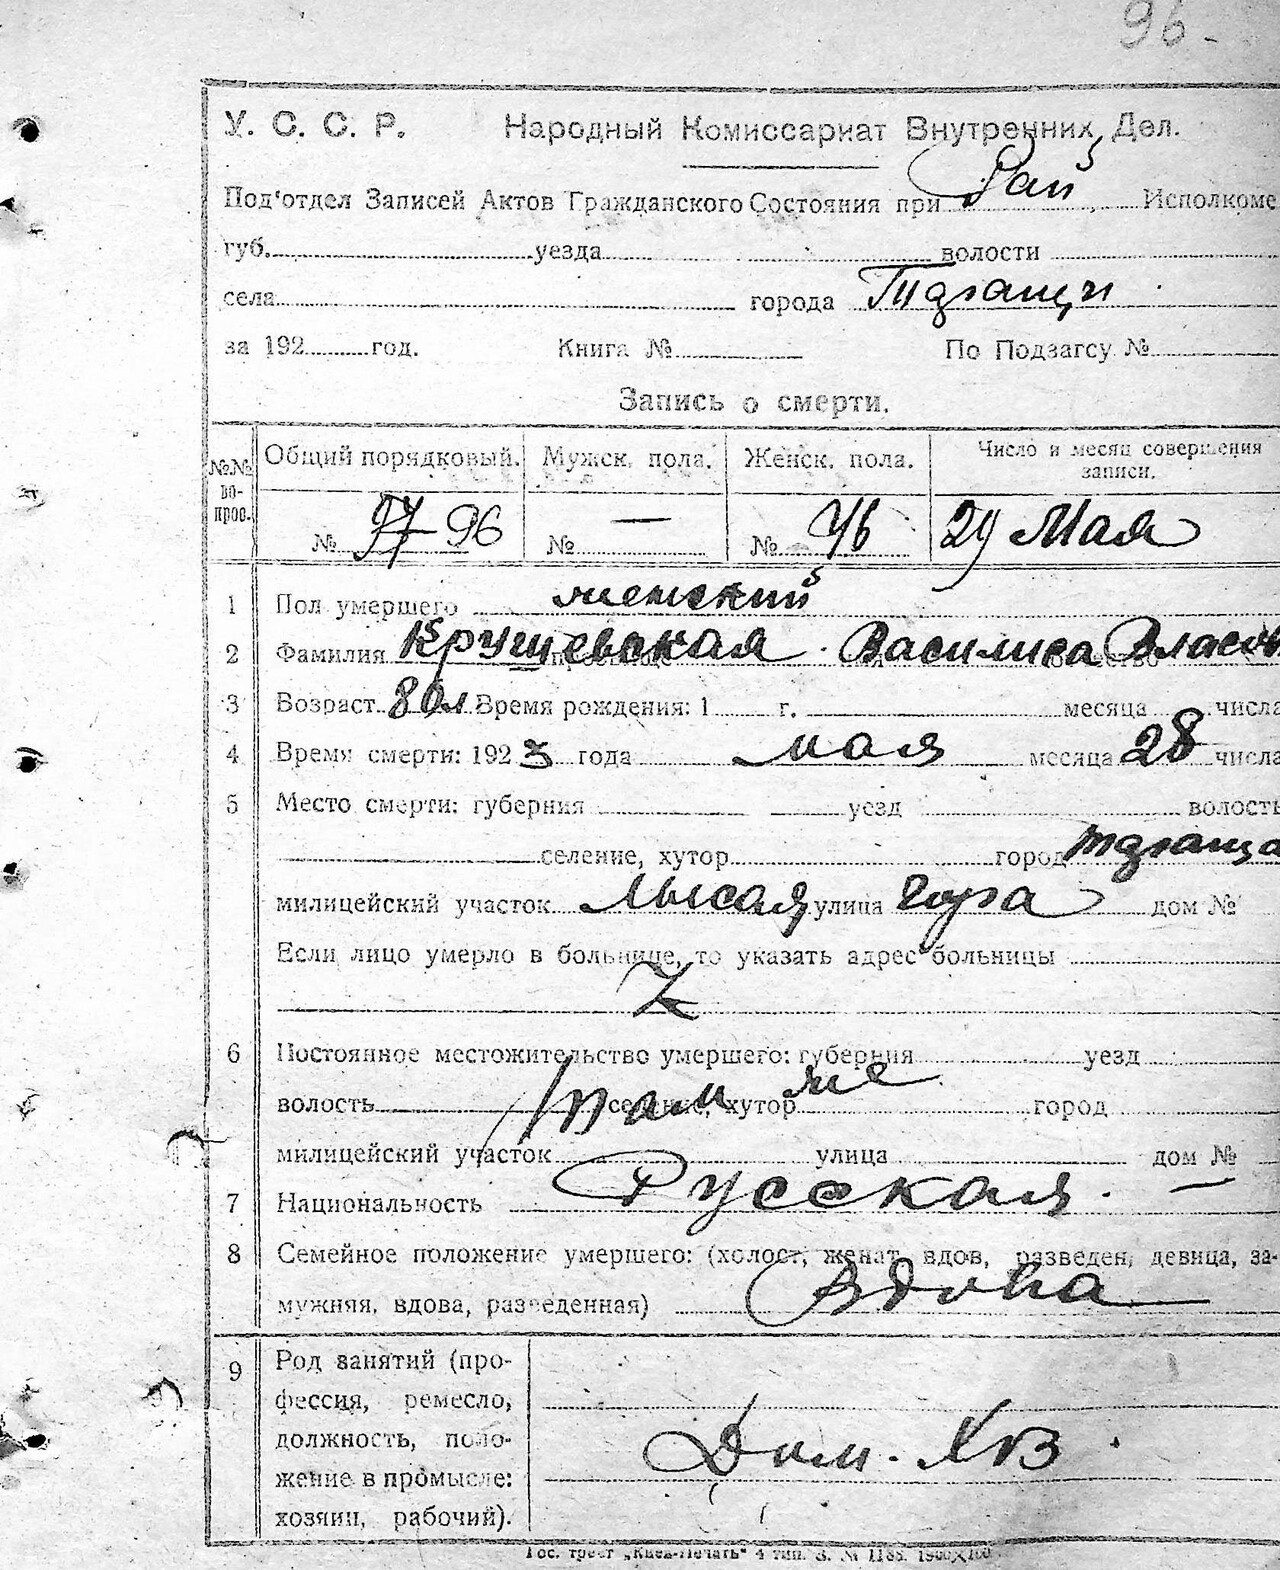 96.
У. С. С. Р. Народный Комиссариат Внутренних Дел.
Под'отдел Записей Актов Гражданского Состояния при Рай Исполкоме
губ. уезда волости
села города
за 192 год. Книга № По Подзагсу №
Запись о смерти.
№№ вопрос. Общий порядковый. Мужск. пола. Женск. пола. Число и месяц совершения записи.
№ 97 96 № — № 46 29 Мая
1 Пол умершего женский
2 Фамилия Крушевская Василиса Власов
3 Возраст 80 л. Время рождения: 1 г. месяца числа
4 Время смерти: 1923 года мая месяца 28 числа
5 Место смерти: губерния уезд волость
селение, хутор город
милицейский участок Лысая улица гора дом №
Если лицо умерло в больнице, то указать адрес больницы
6 Постоянное местожительство умершего: губерния уезд
волость Там же селение, хутор город
милицейский участок улица дом № —
7 Национальность Русская.
8 Семейное положение умершего: (холост, женат, вдов, разведен, девица, за-
мужняя, вдова, разведенная) Вдова
9 Род занятий (про-
фессия, ремесло,
должность, поло- Дом. Хоз.
жение в промысле:
хозяин, рабочий).
Гос. трест „Киев-Печать" 4 тип. З. № 1188. 1900×100